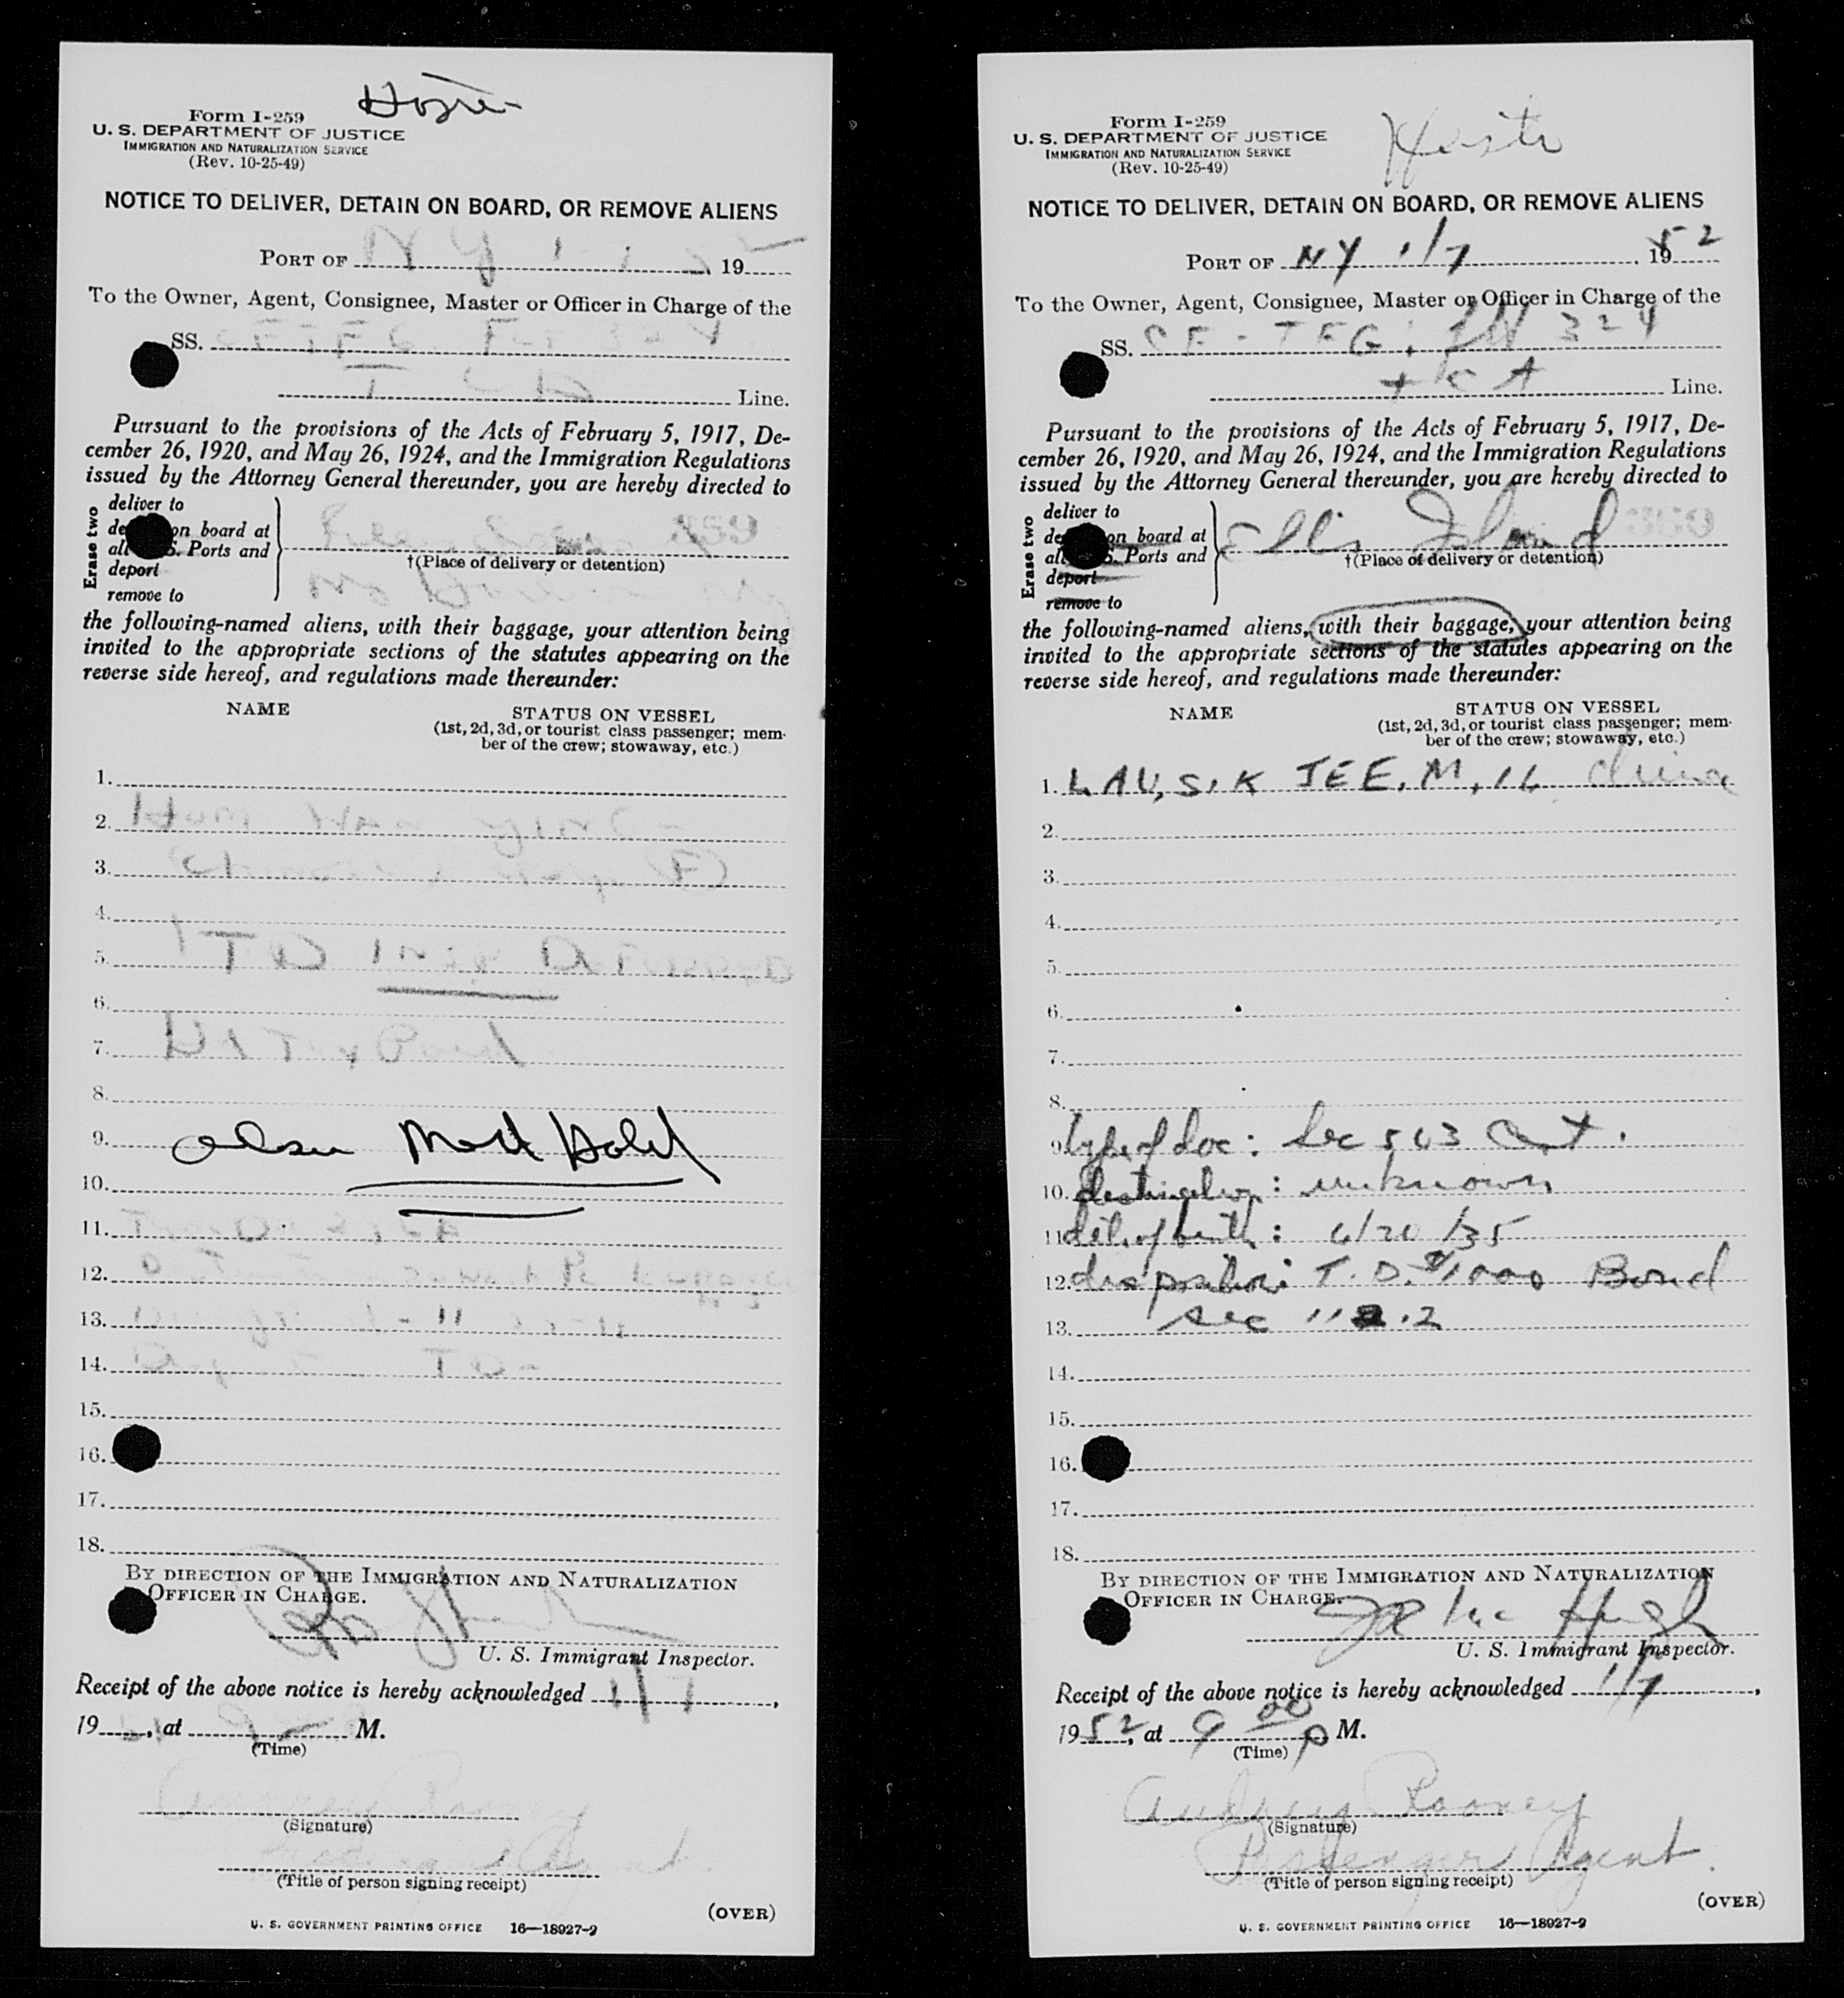 Form I-259
U. S. DEPARTMENT OF JUSTICE
IMMIGRATION AND NATURALIZATION SERVICE
(Rev. 10-25-49)
NOTICE TO DELIVER, DETAIN ON BOARD, OR REMOVE ALIENS
PORT OF N Y , 19
To the Owner, Agent, Consignee, Master or Officer in Charge of the
SS.
Line.
Pursuant to the provisions of the Acts of February 5, 1917, De-
cember 26, 1920, and May 26, 1924, and the Immigration Regulations
issued by the Attorney General thereunder, you are hereby directed to
Erase two
deliver to
on board at
Ports and
deport
remove to
†(Place of delivery or detention)
the following-named aliens, with their baggage, your attention being
invited to the appropriate sections of the statutes appearing on the
reverse side hereof, and regulations made thereunder:
NAME STATUS ON VESSEL
(1st, 2d, 3d, or tourist class passenger; mem-
ber of the crew; stowaway, etc.)
1.
2.
3.
4.
5.
6.
7.
8.
9.
10.
11.
12.
13.
14.
15.
16.
17.
18.
BY DIRECTION OF THE IMMIGRATION AND NATURALIZATION
OFFICER IN CHARGE.
U. S. Immigrant Inspector.
Receipt of the above notice is hereby acknowledged 1/7,
19 , at M.
(Time)
(Signature)
(Title of person signing receipt)
(OVER)
U. S. GOVERNMENT PRINTING OFFICE 16—18927-2
Form I-259
U. S. DEPARTMENT OF JUSTICE
IMMIGRATION AND NATURALIZATION SERVICE
(Rev. 10-25-49)
NOTICE TO DELIVER, DETAIN ON BOARD, OR REMOVE ALIENS
PORT OF NY 1/7 , 1952
To the Owner, Agent, Consignee, Master or Officer in Charge of the
SS. CF-TFG 324
Line.
Pursuant to the provisions of the Acts of February 5, 1917, De-
cember 26, 1920, and May 26, 1924, and the Immigration Regulations
issued by the Attorney General thereunder, you are hereby directed to
Erase two
deliver to
on board at
Ports and
deport
remove to
Ellis Island
†(Place of delivery or detention)
the following-named aliens, with their baggage, your attention being
invited to the appropriate sections of the statutes appearing on the
reverse side hereof, and regulations made thereunder:
NAME STATUS ON VESSEL
(1st, 2d, 3d, or tourist class passenger; mem-
ber of the crew; stowaway, etc.)
1. LAU, SIK JEE, M, 16 China
2.
3.
4.
5.
6.
7.
8.
9. type of doc: Sec 503 Cert.
10. destination: unknown
11. date of birth: 6/20/35
12. disposition: T. D. $1000 Bond
13. sec 112.2
14.
15.
16.
17.
18.
BY DIRECTION OF THE IMMIGRATION AND NATURALIZATION
OFFICER IN CHARGE.
U. S. Immigrant Inspector.
Receipt of the above notice is hereby acknowledged 1/7,
1952, at 9 00 P M.
(Time)
Audrey Rooney
(Signature)
Passenger Agent.
(Title of person signing receipt)
(OVER)
U. S. GOVERNMENT PRINTING OFFICE 16—18927-2